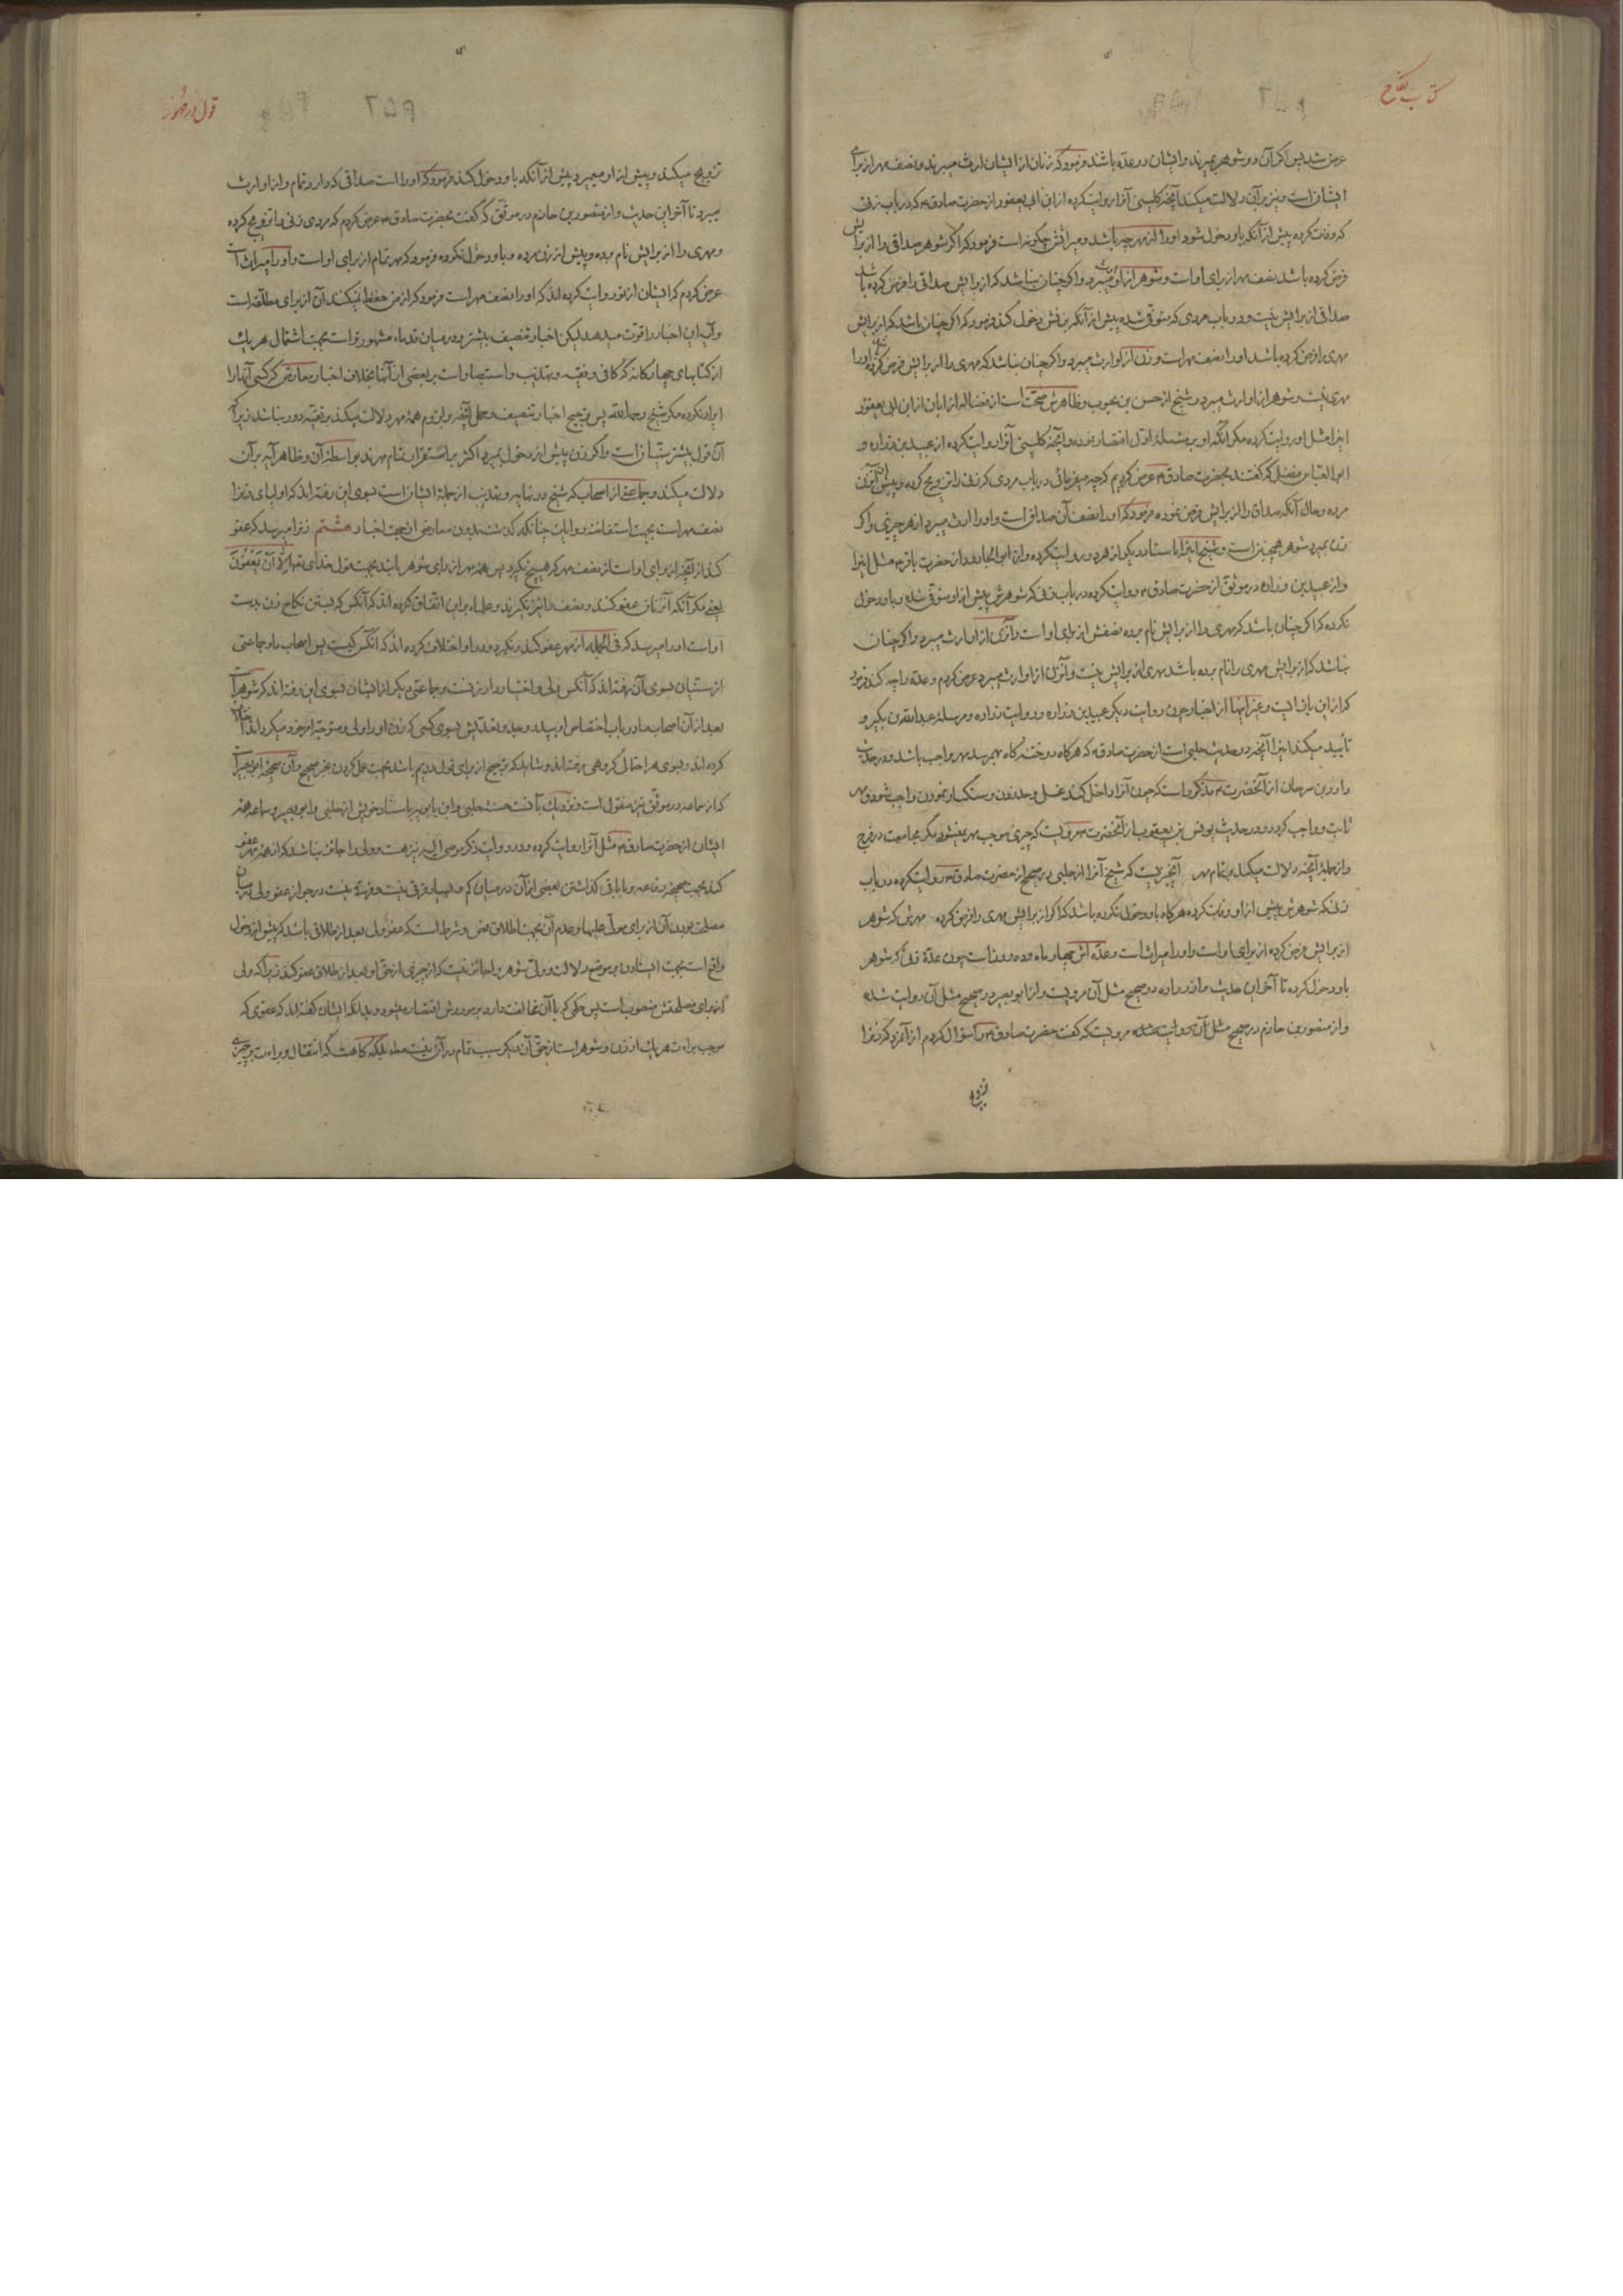 کتاب نکاح
عرض شد پس اگر آن دو شوهر بمیرند و ایشان در عدّه باشند فرمود که زنان از ایشان ارث میبرند و نصف مهر از برای
ایشان است و نیز بر آن دلالت میکند آنچه کلینی آنرا روایت کرده از ابن ابی یعفور از حضرت صادق ع که در باب زنی
که وفات کرده پیش از آنکه باو دخول شود او را از مهر چه باشد و میراثش چگونه است فرمود که اگر شوهر صداقی را از برایش
فرض کرده باشد نصف مهر از برای او است و شوهر از او ارث میبرد و اگر چنان نباشد که از برایش صداقی را فرض کرده باشد
صداقی از برایش نیست و در باب مردی که متوفی شده پیش از آنکه بزنش دخول کند فرمود که اگر چنان باشد که از برایش
مهری فرض کرده باشد او را نصف مهر است و زن از او ارث میبرد و اگر چنان نباشد که مهری را از برایش فرض کرده باشد او را
مهری نیست و شوهر از او ارث میبرد و شیخ از حسن بن محبوب و ظاهرش صحّت است از فضاله از ابان از ابن ابی یعفور
اینرا مثل او روایت کرده مگر آنکه او بر مسئلهٔ اوّل اقتصار نموده و آنچه کلینی آنرا روایت کرده از عبید بن زراره و
ابو العباس فضل که گفتند بحضرت صادق ع عرض کردیم که چه میفرمائی در باب مردی که زنی را تزویج کرده و پیش از آن زن
مرده و حال آنکه صداق را از برایش فرض نموده فرمود که او را نصف آن صداق است و او را ارث میبرد از هر چیزی و اگر
زن بمیرد شوهر همچنین است و شیخ اینرا باسناد دیگر از هر دو روایت کرده و ابن ابو الجارود از حضرت باقر ع مثل اینرا
و از عبید بن زراره در موثّق از حضرت صادق ع روایت کرده در باب زنی که شوهرش پیش از او متوفی شده و باو دخول
نکرده که اگر چنان باشد که مهری را از برایش نام برده نصفش از برای او است و آن زن از او ارث میبرد و اگر چنان
نباشد که از برایش مهری را نام برده باشد مهری از برایش نیست و آن زن از او ارث میبرد عرض کردم و عدّه را چه کند فرمود
که از این باز ایست و غیر اینها از اخبار چون روایت دیگر عبید بن زراره و روایت زراره و مرسلهٔ عبد الله بن بکیر و
تأیید میکند اینرا آنچه در حدیث حلبی است از حضرت صادق ع که هر گاه دو ختنه گاه بهم رسد مهر واجب باشد و در حدیث
داود بن سرحان از آنحضرت ع مذکور است که چون آنرا داخل کند غسل و حد زدن و سنگسار نمودن واجب شود و مهر
ثابت و واجب گردد و در حدیث یونس بن یعقوب از آنحضرت ع مرویست که چیزی موجب مهر نمیشود مگر مجامعت در فرج
و از جملهٔ آنچه دلالت میکند بر تمام مهر آنچیزیست که شیخ آنرا از حلبی در صحیح از حضرت صادق ع روایت کرده در باب
زنی که شوهرش پیش از او وفات کرده هر گاه باو دخول نکرده باشد که اگر از برایش مهری را فرض کرده مهرش که شوهر
از برایش فرض کرده از برای او است و او را میراث است و عدّه اش چهار ماه و ده روز است چون عدّهٔ زنی که شوهر
باو دخول کرده تا آخر این حدیث و از زراره در صحیح مثل آن مرویست و از ابو بصیر در صحیح مثل آن روایت شده
و از منصور بن حازم در صحیح مثل آن مرویست که گفت حضرت صادق ع را سؤال کردم از آنمرد که زنرا
تزویج
قول در مهور
تزویج میکند و پیش از او میمیرد پیش از آنکه باو دخول کند فرمود که او را است صداقی که دارد تمام و از او ارث
میبرد تا آخر این حدیث و از منصور بن حازم در موثّق که گفت بحضرت صادق ع عرض کردم که مردی زنی را تزویج کرده
و مهری را از برایش نام برده و پیش از زن مرده و باو دخول نکرده فرمود که مهر تمام از برای او است و او را میراث است
عرض کردم که ایشان از تو روایت کرده اند که او را نصف مهر است فرمود که از من حفظ نمیکنند آن از برای مطلّقه است
و آیه این اخبار را قوّت میدهد لیکن اخبار تنصیف بیشتر و در میان قدماء مشهورتر است بجهت اشتمال هر یک
از کتابهای چهارگانه که کافی و فقیه و تهذیب و استبصار است بر بعضی از آنها بخلاف اخبار معارض که کسی آنها را
ایراد نکرده مگر شیخ رحمه الله پس ترجیح اخبار تنصیف و حمل آنچه بر لزوم همهٔ مهر دلالت میکند بر تقیّه دور نباشد زیرا که
آن قول بیشتر سنّیان است و اگر زن پیش از دخول بمیرد اکثر بر استقرار تمام مهرند بواسطهٔ آن و ظاهر آیه بر آن
دلالت میکند و جماعتی از اصحاب که شیخ در نهایه و تهذیب از جملهٔ ایشان است بسوی این رفته اند که اولیای زنرا
نصف مهر است بجهت استفاضهٔ روایات چنانکه گذشت بدون معارض از جهت اخبار هشتم زنرا میرسد که عفو
کند از آنچه از برای او است از نصف مهر که هیچ نگیرد پس همهٔ مهر از برای شوهر باشد بجهت قول خدای تعالی إِلَّا أَنْ يَعْفُونَ
یعنی مگر آنکه آن زنان عفو کنند و نصف را نیز نگیرند و علماء بر این اتّفاق کرده اند که آنکس که بستن نکاح زن بدست
او است او را میرسد که فی الجمله از مهر عفو کند و نگیرد و در او اختلاف کرده اند که آنکس کیست پس اصحاب ما و جماعتی
از سنّیان بسوی آن رفته اند که آنکس ولی و اختیاردار زنست و جماعتی دیگر از ایشان بسوی این رفته اند که شوهر است
بعد از آن اصحاب ما در باب اختصاص او بپدر و جد و تعدّیش بسوی کسی که زن او را ولی و متوجّه امر خود میگرداند اختلاف
کرده اند و بسوی هر احتمالی گروهی رفته اند و شاید که ترجیح از برای قول دویم باشد بجهت عمل کردن بخبر صحیح و آن صحیحهٔ ابو بصیر است
که از سماعه در موثّق نیز منقول است و نزدیک بآنست حسنهٔ حلبی و ابن بابویه باسناد خویش از حلبی و ابو بصیر و سماعه همهٔ
ایشان از حضرت صادق ع مثل آنرا روایت کرده و در روایت ذکر موصی الیه نیز هست و ولی را جائز نباشد که از همهٔ مهر عفو
کند بجهت صحیحهٔ رفاعه و با باقی گذاشتن بعضی از آن در میان کم و بسیار فرقی نیست و فرقی نیست در جواز عفو ولی میان
مصلحت بودن آن از برای مولّی علیها و عدم آن بجهت اطلاق نص و شرط است که عفو ولی بعد از طلاق باشد که پیش از دخول
واقع است بجهت ایستادن بر موضع دلالت و ولی شوهر را جائز نیست که از چیزی از حق او بعد از طلاق عفو کند زیرا که ولی
از برای مصلحتش منصوب است پس حکمی که با آن مخالفت دارد بر موردش اقتصار میشود و بدانکه ایشان گفته اند که عفوی که
موجب براءت هر یک از زن و شوهر است از حق آن دیگر سبب تمام در آن نیست بلکه گاهست که انتقال و براءت بر چیزی